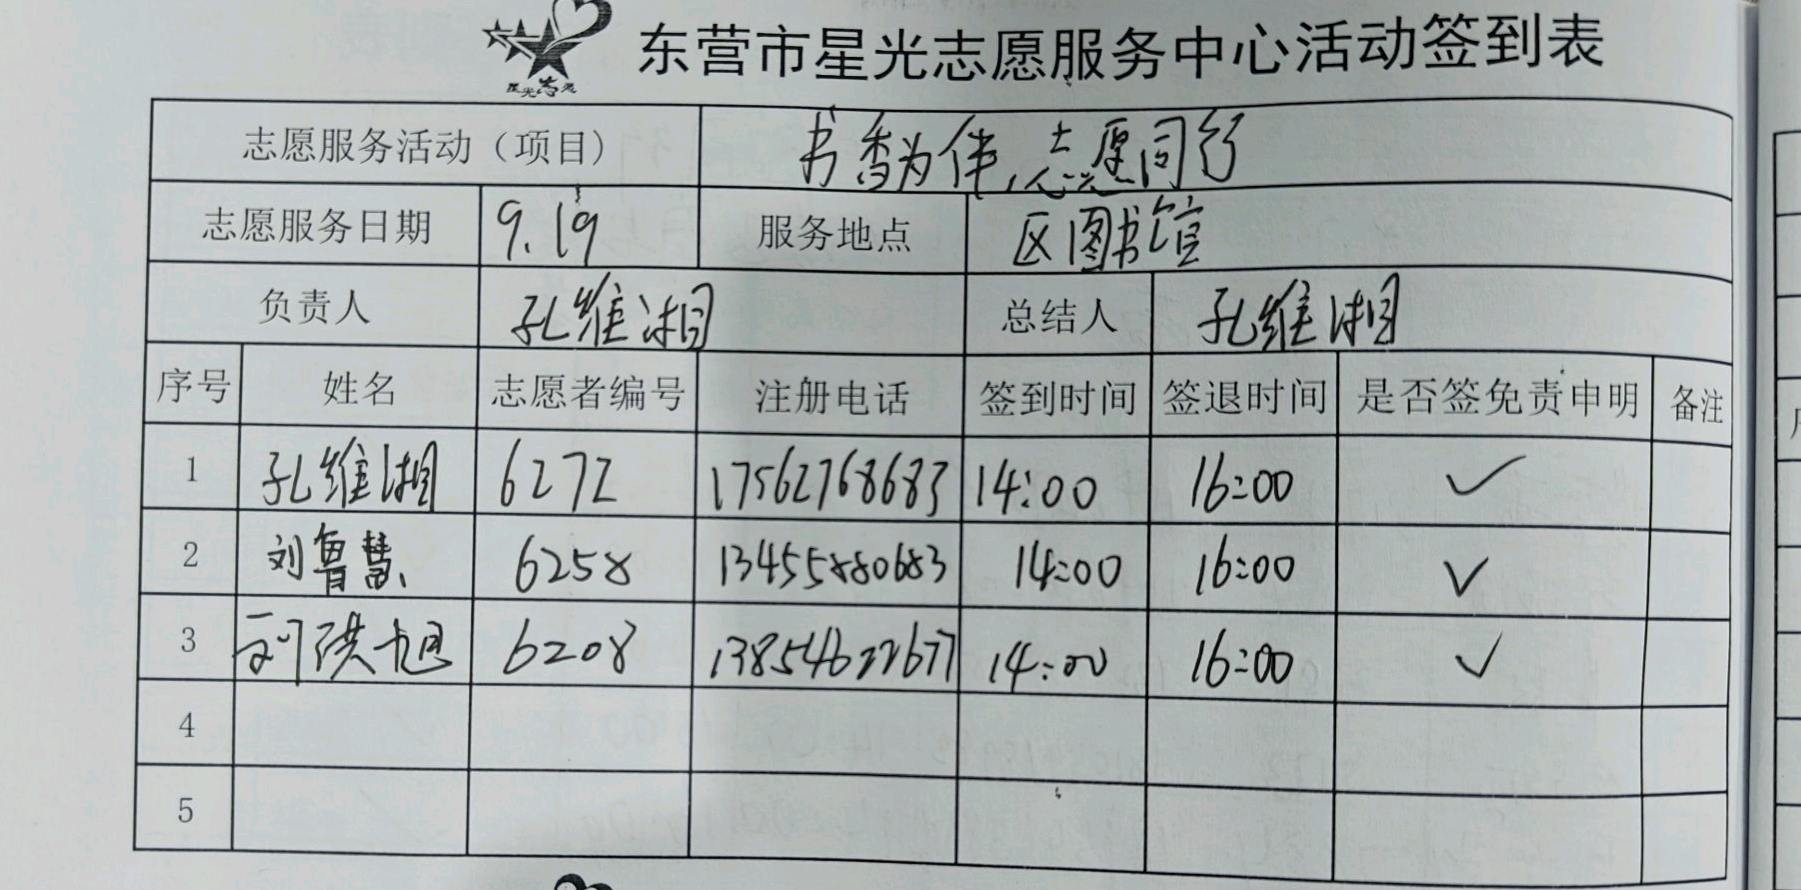 星光志愿
东营市星光志愿服务中心活动签到表
志愿服务活动（项目） 书香为伴,志愿同行
志愿服务日期 9.19 服务地点 区图书馆
负责人 孔维湘 总结人 孔维湘
序号 姓名 志愿者编号 注册电话 签到时间 签退时间 是否签免责申明 备注
1 孔维湘 6272 17562768683 14:00 16:00 ✓
2 刘鲁慧 6258 13455880683 14:00 16:00 ✓
3 刘洪旭 6208 13854622677 14:00 16:00 ✓
4
5